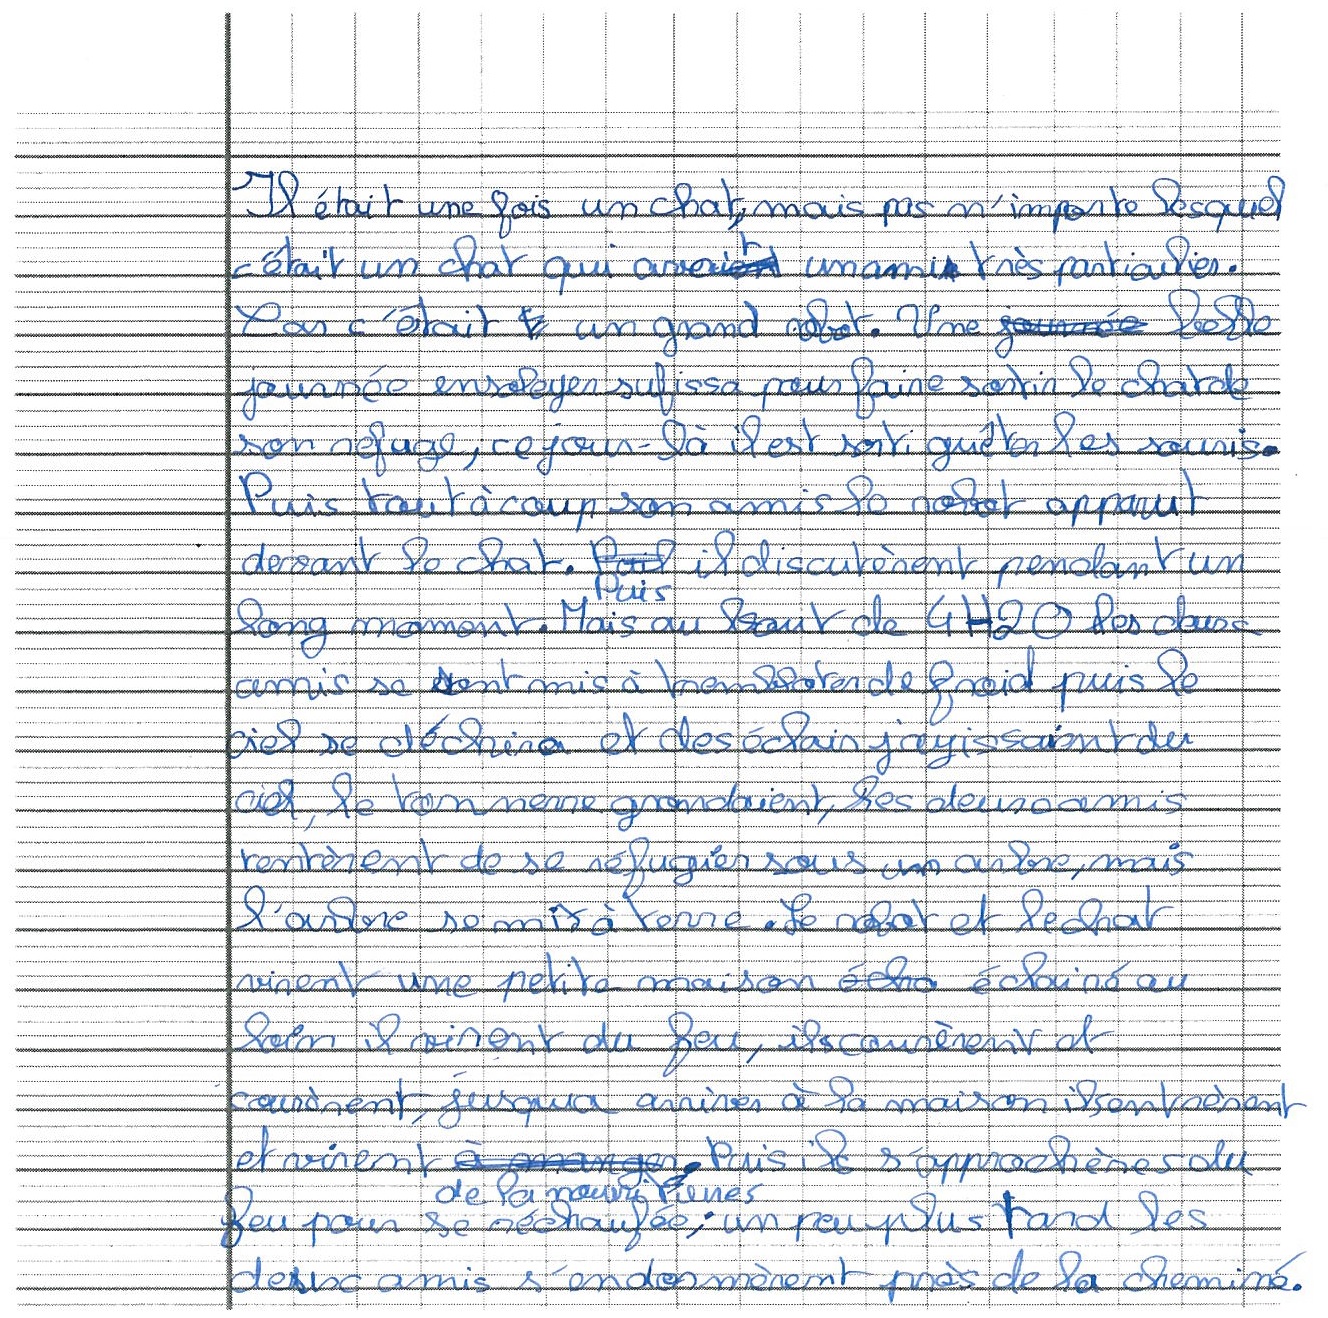 Il était une fois un chat, mais pas n'importe lesquel
c'était un chat qui avait un ami très particulier.
Car c'était un grand robot. Une belle
journée ensoleyer sufissa pour faire sortir le chat de
son réfuge, ce jour-là il est sorti guêter les souris.
Puis tout à coup son amis le robot apparut
devant le chat. il discutèrent pendant un
Puis
long moment. Mais au bout de 4H20 les deux
amis se sont mis à trembloter de froid puis le
ciel se déchira et des éclair jayissaient du
ciel, le tonnerre grondaient, les deux amis
tentèrent de se réfugier sous un arbre, mais
l'arbre se mit à terre. Le robot et le chat
virent une petite maison éclairé au
loin il virent du feu, ils courèrent et
courèrent, jusqua arriver à la maison ils entrèrent
et virent Puis ils s'approchères du
de la nourritures
feu pour se réchaufée, un peu plus tard les
deux amis s'endormèrent près de la cheminé.